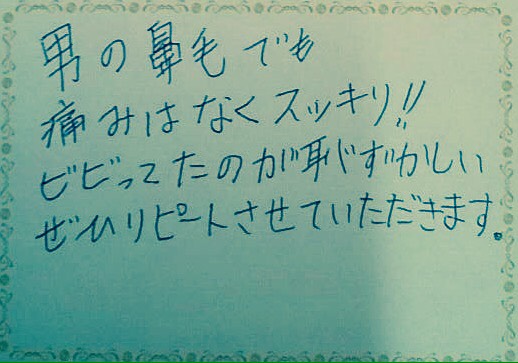 男の鼻毛でも
痛みはなくスッキリ!!
ビビってたのが恥ずかしい
ぜひリピートさせていただきます。